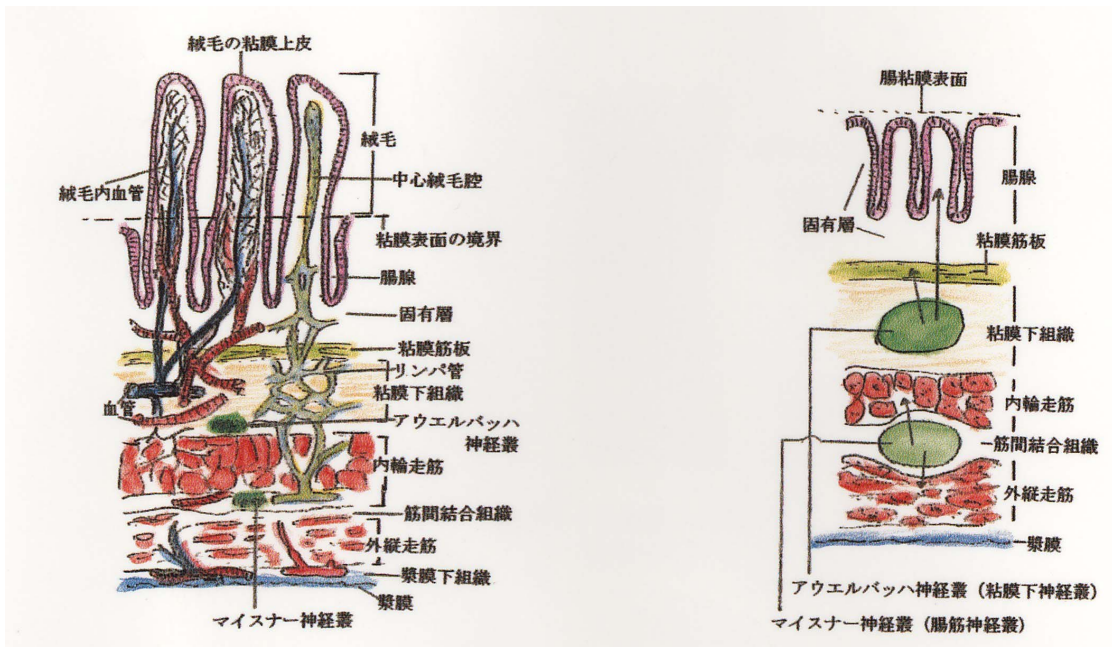 絨毛の粘膜上皮
絨毛
絨毛内血管
中心絨毛腔
粘膜表面の境界
腸腺
固有層
粘膜筋板
リンパ管
粘膜下組織
血管
アウエルバッハ
神経叢
内輪走筋
筋間結合組織
外縦走筋
漿膜下組織
漿膜
マイスナー神経叢
腸粘膜表面
腸腺
固有層
粘膜筋板
粘膜下組織
内輪走筋
筋間結合組織
外縦走筋
漿膜
アウエルバッハ神経叢（粘膜下神経叢）
マイスナー神経叢（腸筋神経叢）